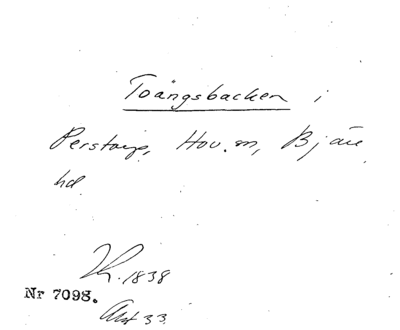 Toängsbacken i
Perstorp, Hov. sn, Bjäre
hd
Th. 1838
Nr 7098.
Akt 33